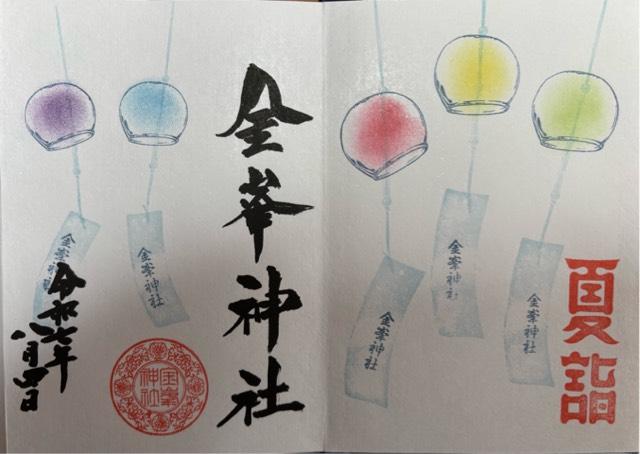 夏詣
金峯神社
金峯神社
金峯神社
金峯神社
金峯神社
金峯神社
令和七年
八月四日
金峯
神社